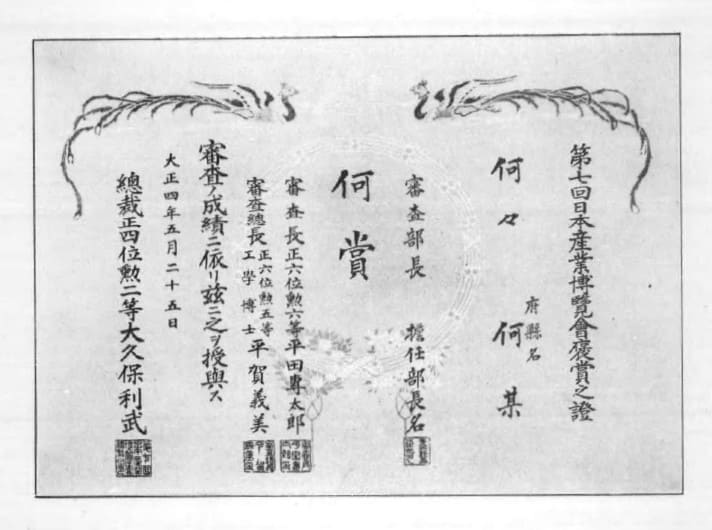 第七回日本産業博覽會褒賞之證
府縣名
何々 何某
審査部長 擔任部長名
何賞
審査長正六位勲六等平田專太郎
審査總長正六位勲五等工學博士平賀義美
審査ノ成績ニ依リ茲ニ之ヲ授與ス
大正四年五月二十五日
總裁正四位勲二等大久保利武